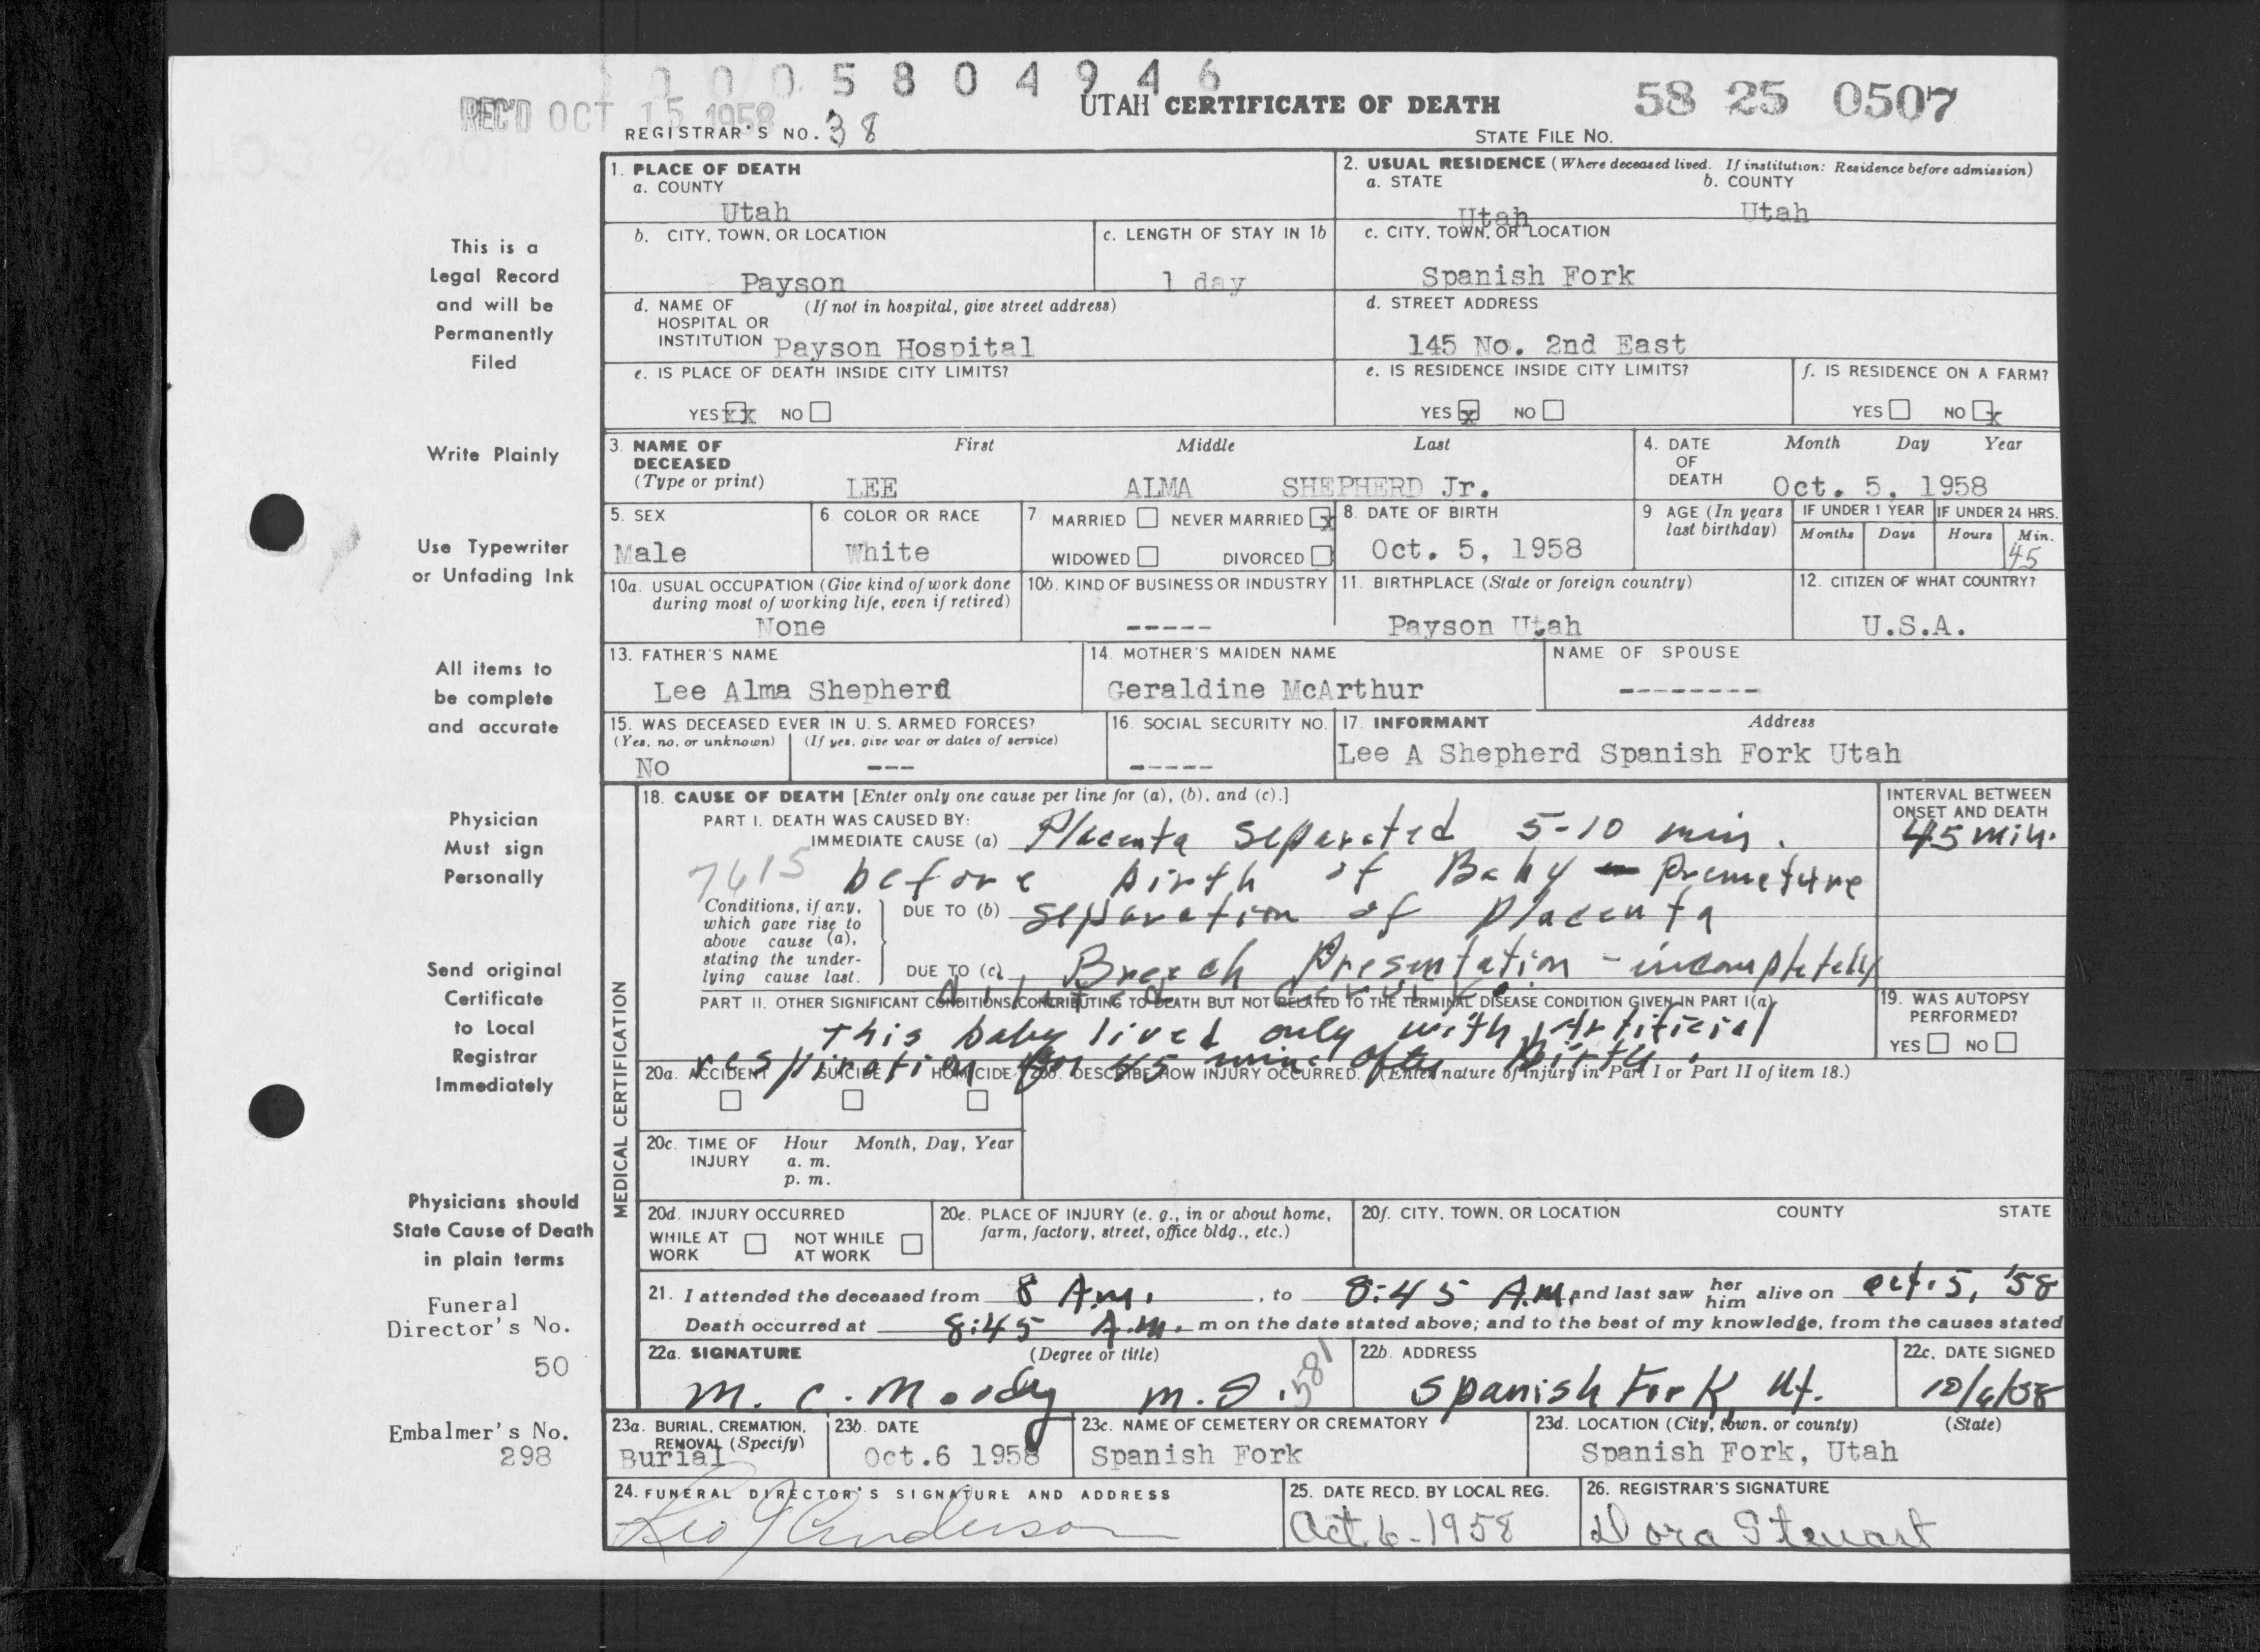 0 0 0 5 8 0 4 9 4 6
REC'D OCT 15 1958
UTAH CERTIFICATE OF DEATH
58 25 0507
REGISTRAR'S NO. 38
STATE FILE NO.
This is a
Legal Record
and will be
Permanently
Filed
Write Plainly
Use Typewriter
or Unfading Ink
All items to
be complete
and accurate
Physician
Must sign
Personally
Send original
Certificate
to Local
Registrar
Immediately
Physicians should
State Cause of Death
in plain terms
Funeral
Director's No.
50
Embalmer's No.
298
1. PLACE OF DEATH
a. COUNTY
Utah
2. USUAL RESIDENCE (Where deceased lived. If institution: Residence before admission)
a. STATE b. COUNTY
Utah Utah
b. CITY, TOWN, OR LOCATION
Payson
c. LENGTH OF STAY IN 1b
1 day
c. CITY, TOWN, OR LOCATION
Spanish Fork
d. NAME OF (If not in hospital, give street address)
HOSPITAL OR
INSTITUTION Payson Hospital
d. STREET ADDRESS
145 No. 2nd East
e. IS PLACE OF DEATH INSIDE CITY LIMITS?
YES xx NO
e. IS RESIDENCE INSIDE CITY LIMITS?
YES x NO
f. IS RESIDENCE ON A FARM?
YES NO x
3. NAME OF DECEASED (Type or print)
First Middle Last
LEE ALMA SHEPHERD Jr.
4. DATE OF DEATH
Month Day Year
Oct. 5, 1958
5. SEX
Male
6. COLOR OR RACE
White
7. MARRIED NEVER MARRIED x
WIDOWED DIVORCED
8. DATE OF BIRTH
Oct. 5, 1958
9 AGE (In years last birthday)
IF UNDER 1 YEAR IF UNDER 24 HRS.
Months Days Hours Min.
45
10a. USUAL OCCUPATION (Give kind of work done
during most of working life, even if retired)
None
10b. KIND OF BUSINESS OR INDUSTRY
-----
11. BIRTHPLACE (State or foreign country)
Payson Utah
12. CITIZEN OF WHAT COUNTRY?
U.S.A.
13. FATHER'S NAME
Lee Alma Shepherd
14. MOTHER'S MAIDEN NAME
Geraldine McArthur
NAME OF SPOUSE
--------
15. WAS DECEASED EVER IN U. S. ARMED FORCES?
(Yes, no, or unknown) (If yes, give war or dates of service)
No ---
16. SOCIAL SECURITY NO.
-----
17. INFORMANT Address
Lee A Shepherd Spanish Fork Utah
MEDICAL CERTIFICATION
18. CAUSE OF DEATH [Enter only one cause per line for (a), (b), and (c).]
INTERVAL BETWEEN
ONSET AND DEATH
PART I. DEATH WAS CAUSED BY:
IMMEDIATE CAUSE (a) Placenta separated 5-10 min. 45 min.
7615 before birth of Baby - premature
Conditions, if any,
which gave rise to
above cause (a),
stating the under-
lying cause last.
DUE TO (b) separation of placenta
DUE TO (c) Breech Presentation - incompletely
PART II. OTHER SIGNIFICANT CONDITIONS CONTRIBUTING TO DEATH BUT NOT RELATED TO THE TERMINAL DISEASE CONDITION GIVEN IN PART I(a)
dilated cervix.
This baby lived only with Artificial
respiration for 45 min. after birth.
19. WAS AUTOPSY
PERFORMED?
YES NO
20a. ACCIDENT SUICIDE HOMICIDE
20b. DESCRIBE HOW INJURY OCCURRED. (Enter nature of injury in Part I or Part II of item 18.)
20c. TIME OF INJURY
Hour Month, Day, Year
a. m.
p. m.
20d. INJURY OCCURRED
WHILE AT WORK NOT WHILE AT WORK
20e. PLACE OF INJURY (e. g., in or about home,
farm, factory, street, office bldg., etc.)
20f. CITY, TOWN, OR LOCATION COUNTY STATE
21. I attended the deceased from 8 A.m. , to 8:45 A.M. and last saw her him alive on oct. 5, '58
Death occurred at 8:45 A.M. m on the date stated above; and to the best of my knowledge, from the causes stated
22a. SIGNATURE (Degree or title)
M. C. Moody M.D. 581
22b. ADDRESS
Spanish Fork, Ut.
22c. DATE SIGNED
10/6/58
23a. BURIAL, CREMATION,
REMOVAL (Specify)
Burial
23b. DATE
Oct.6 1958
23c. NAME OF CEMETERY OR CREMATORY
Spanish Fork
23d. LOCATION (City, town, or county) (State)
Spanish Fork, Utah
24. FUNERAL DIRECTOR'S SIGNATURE AND ADDRESS
Anderson
25. DATE RECD. BY LOCAL REG.
Oct. 6-1958
26. REGISTRAR'S SIGNATURE
Dora Stewart